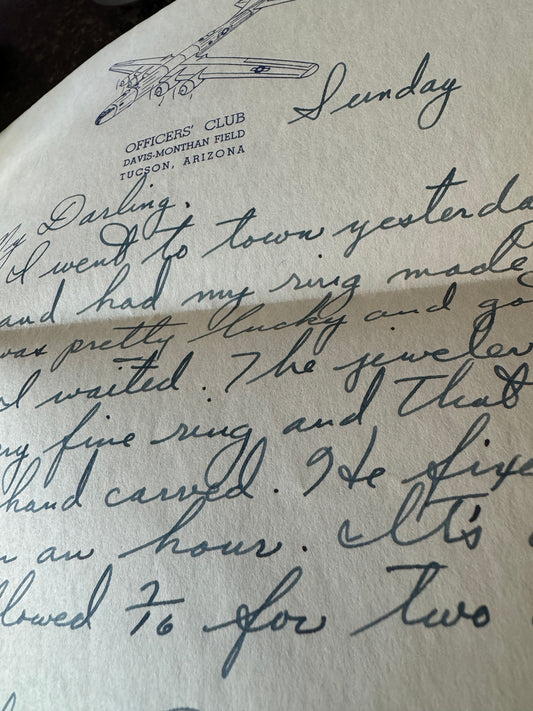 OFFICERS' CLUB
DAVIS-MONTHAN FIELD
TUCSON, ARIZONA
Sunday
My Darling.
I went to town yesterda
and had my ring made
was pretty lucky and go
I waited. The jeweler
ny fine ring and that
hand carved. He fixe
n an hour. It's
llowed 7/16 for two